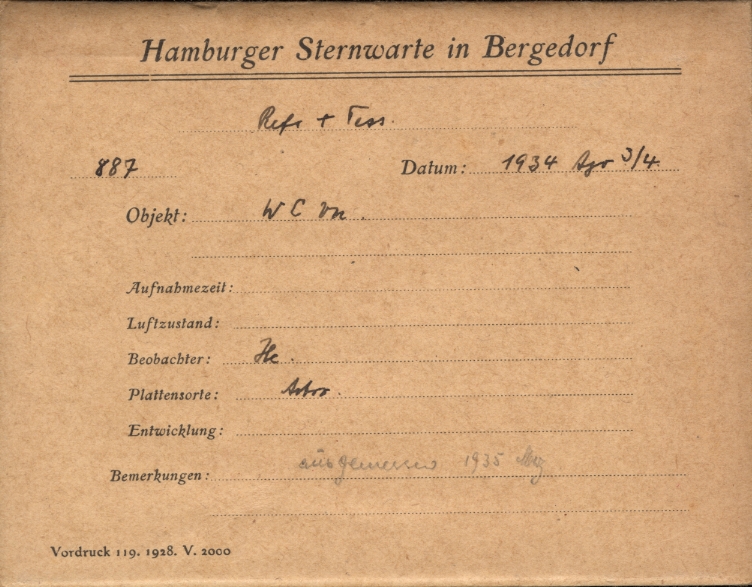 Hamburger Sternwarte in Bergedorf
Refr + Tess.
887 Datum: 1934 Apr 3/4
Objekt: W C Vn.
Aufnahmezeit:
Luftzustand:
Beobachter:
Plattensorte: Astro.
Entwicklung:
Bemerkungen: ausgemessen 1935
Vordruck 119. 1928. V. 2000